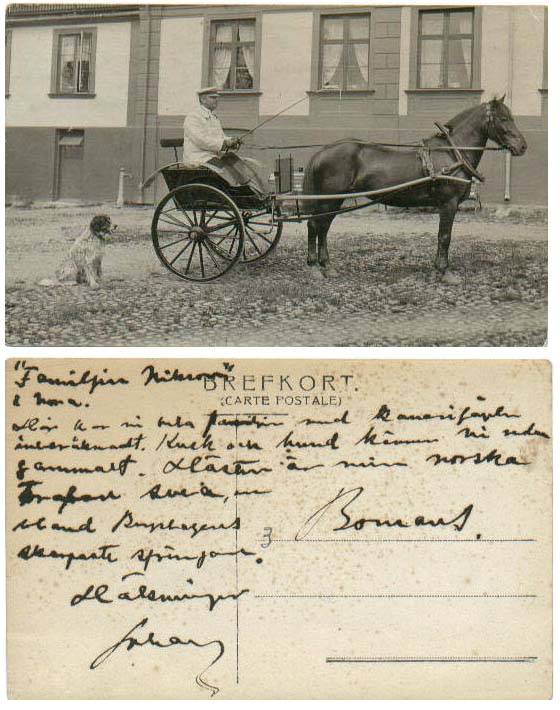 "Familjen Nilsson"
i Nora.
BREFKORT.
(CARTE POSTALE)
Här har ni hela familjen med kanarifågeln
inberäknadt. Kusk och hund känner ni sedan
gammalt. Hästen är min norska
Svea, en
bland Bergslagens
skarpaste springare.
Hälsningar
Johan
3
Bomans.